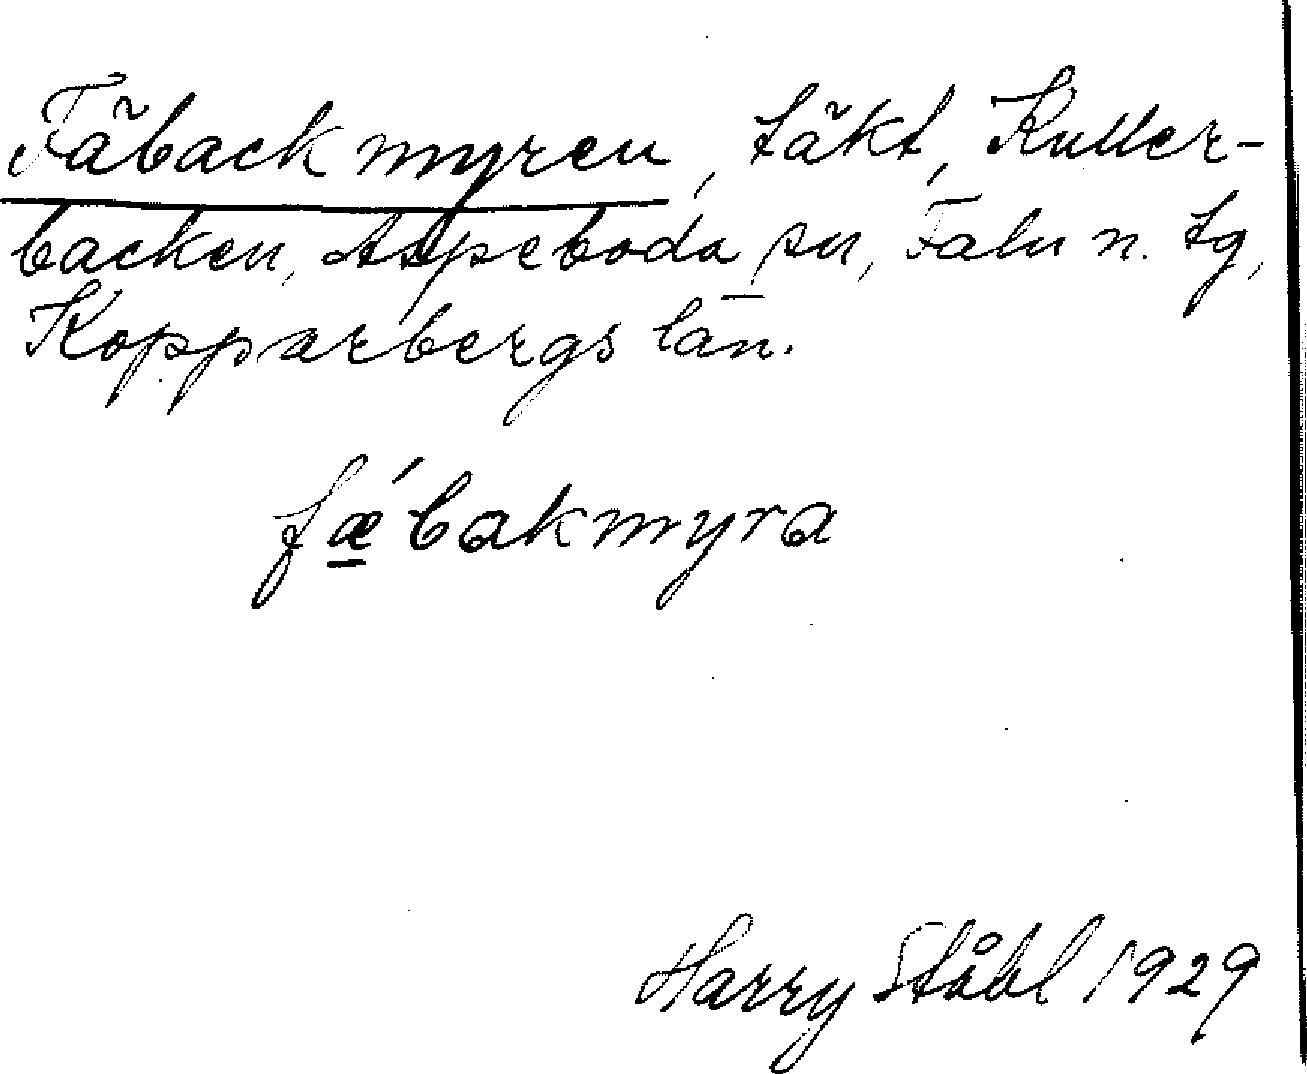 Fäbackmyren, täkt, Kuller-
backen, Aspeboda sn, Falu n. tg,
Kopparbergs län.
fǽ̲bakmyra
Harry Ståhl 1929